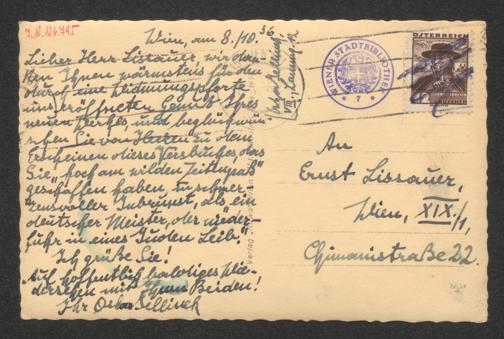 J.N. 126.745
Wien, am 8./10. 36.
Lieber Herr Lissauer, wir dan-
ken Ihnen wärmstens für den
durch eine Zeichnungspforte
uns eröffneten Genuß Ihres
neuen Werkes, und beglückwün-
schen Sie von Herzen zu dem
Erscheinen dieses Versbuches, das
Sie "hoch am wilden Zeitenpaß"
geschaffen haben, zu schmer-
zensvoller Inbrunst, als ein
deutscher Meister, der wieder-
fuhr in eines Juden Leib."
Ich grüße Sie!
Auf hoffentlich baldiges Wie-
dersehen mit Ihnen Beiden!
Ihr Oskar Jellinek
VIII.
WIENER STADTBIBLIOTHEK
* 7 *
ÖSTERREICH
12
An
Ernst Lissauer,
Wien, XIX./1,
Chimanistraße 22.